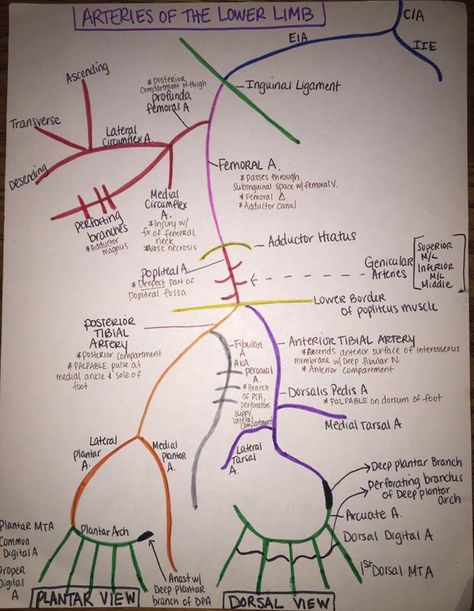 ARTERIES OF THE LOWER LIMB
CIA
EIA
IIE
Ascending
*Posterior
compartment of thigh
profunda
femoral A.
Inguinal Ligament
Transverse
Lateral
Circumflex A.
Desending
FEMORAL A.
*Passes through
Subinguinal space w/ femoral V.
*Femoral Δ
*Adductor canal
Medial
Circumflex
A.
*Injury w/
fx of femoral
neck
*Avasc necrosis
perforting
branches
*Adductor
magnus
Adductor Hiatus
Popliteal A
*Deepest part of
popliteal fossa
Genicular
Arteries
Superior
M/L
Inferior
M/L
Middle
Lower Border
of popliteus muscle
POSTERIOR
TIBIAL
ARTERY
*Posterior compartment
*PALPABLE pulse at
medial ankle & sole of
foot
Fibular
A
AKA
peroneal
A.
*Branch
of PTA,
perforators
supply
lateral
compartment
ANTERIOR TIBIAL ARTERY
*Descends anterior surface of interosseous
membrane w/ Deep fibular N.
*Anterior compartment
Dorsalis Pedis A
*PALPABLE on dorsum of foot
Medial Tarsal A
Lateral
plantar
A.
Medial
plantar
A.
Lateral
Tarsal
A.
Deep plantar Branch
Perforating branches
of Deep plantar
arch
Arcuate A.
Dorsal Digital A
1st Dorsal MTA
Plantar MTA
Common
Digital A
Proper
Digital
A
Plantar Arch
Anast w/
Deep plantar
branch of DPA
PLANTAR VIEW
DORSAL VIEW